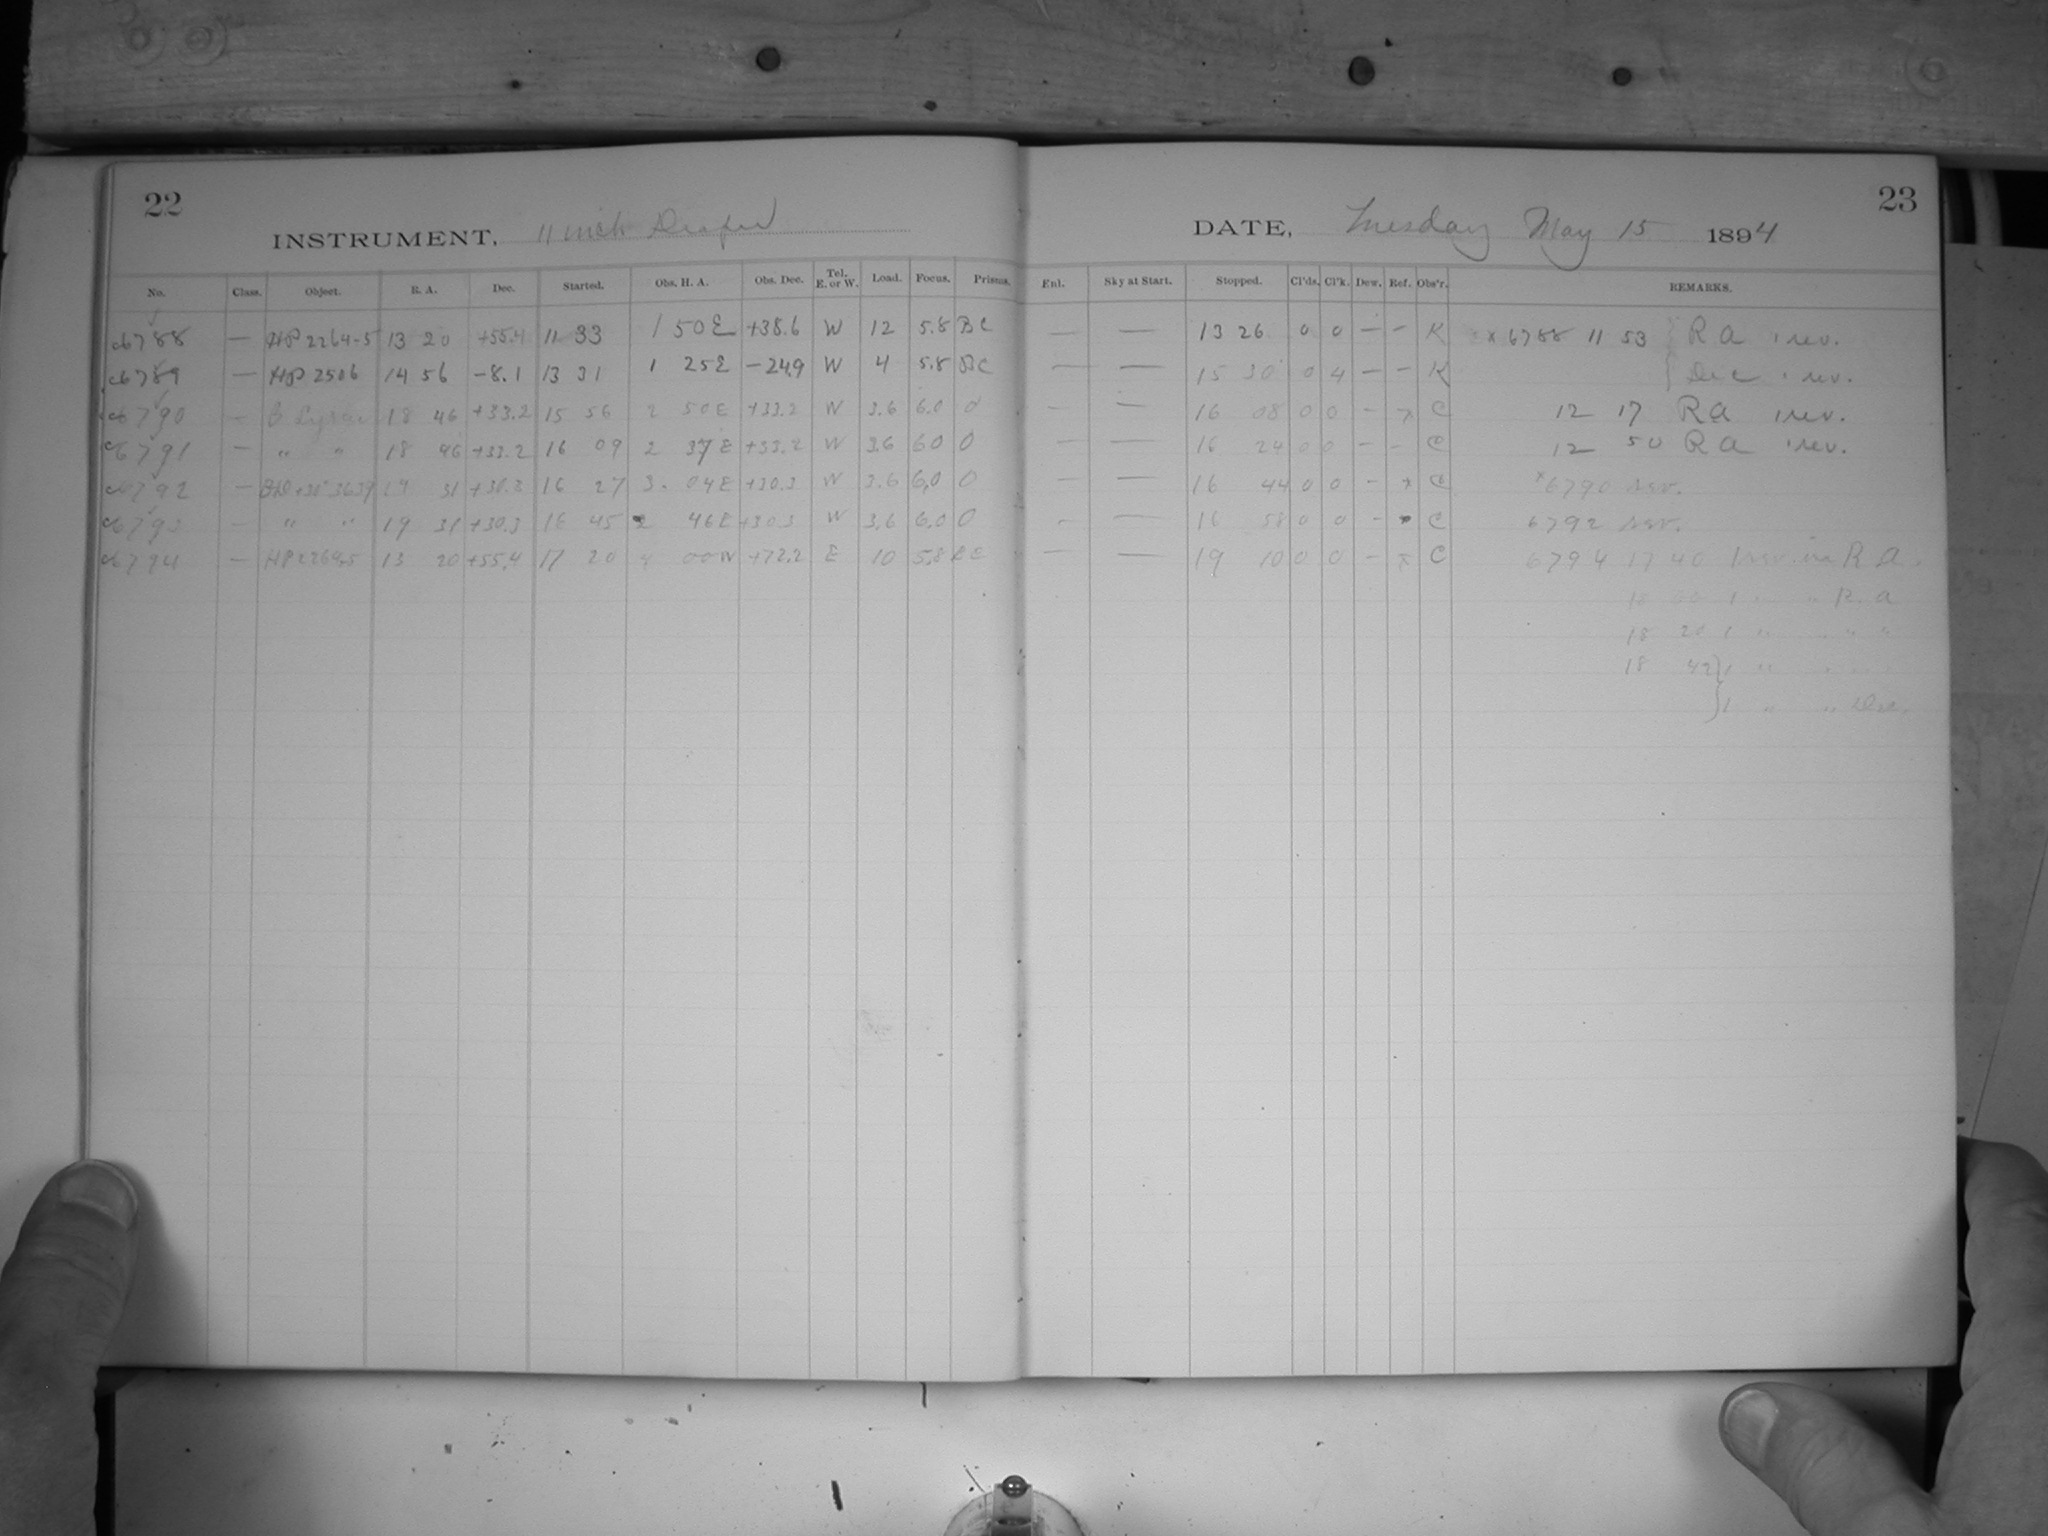 22
INSTRUMENT, 11 inch Draper
No. Class. Object. R. A. Dec. Started. Obs. H. A. Obs. Dec. Tel. E. or W. Load. Focus. Prisms.
c6788 — HP 2264-5 13 20 +55.4 11 33 1 50E +38.6 W 12 5.8 BC
c6789 — HP 2506 14 56 -8.1 13 31 1 25E -24.9 W 4 5.8 BC
c6790 — β Lyrae 18 46 +33.2 15 56 2 50E +33.2 W 3.6 6.0 0
c6791 — " " 18 46 +33.2 16 09 2 37E +33.2 W 3.6 6.0 0
c6792 — +30° 3639 19 31 +30.3 16 27 3 04E +30.3 W 3.6 6.0 0
c6793 — " " 19 31 +30.3 16 45 2 46E +30.3 W 3.6 6.0 0
c6794 — HP 2264.5 13 20 +55.4 17 20 4 00W +72.2 E 10 5.8 BC
23
DATE, Tuesday May 15 1894
Enl. Sky at Start. Stopped. Cl'ds. Cl'k. Dew. Ref. Obs'r. REMARKS.
— — 13 26 0 0 — – K x 6788 11 53 { RA 1 rev.
— — 15 30 0 4 — – K { Dec 1 rev.
– — 16 08 0 0 – x C 12 17 RA 1 rev.
— — 16 24 0 0 – – C 12 50 RA 1 rev.
— — 16 44 0 0 – x C x 6790 rev.
– — 16 58 0 0 – C 6792 rev.
— — 19 10 0 0 – x C 6794 17 40 1 rev. in R A.
18 00 1 " " R. A
18 20 1 " " " "
18 42 } 1 " "
} 1 " " Dec.